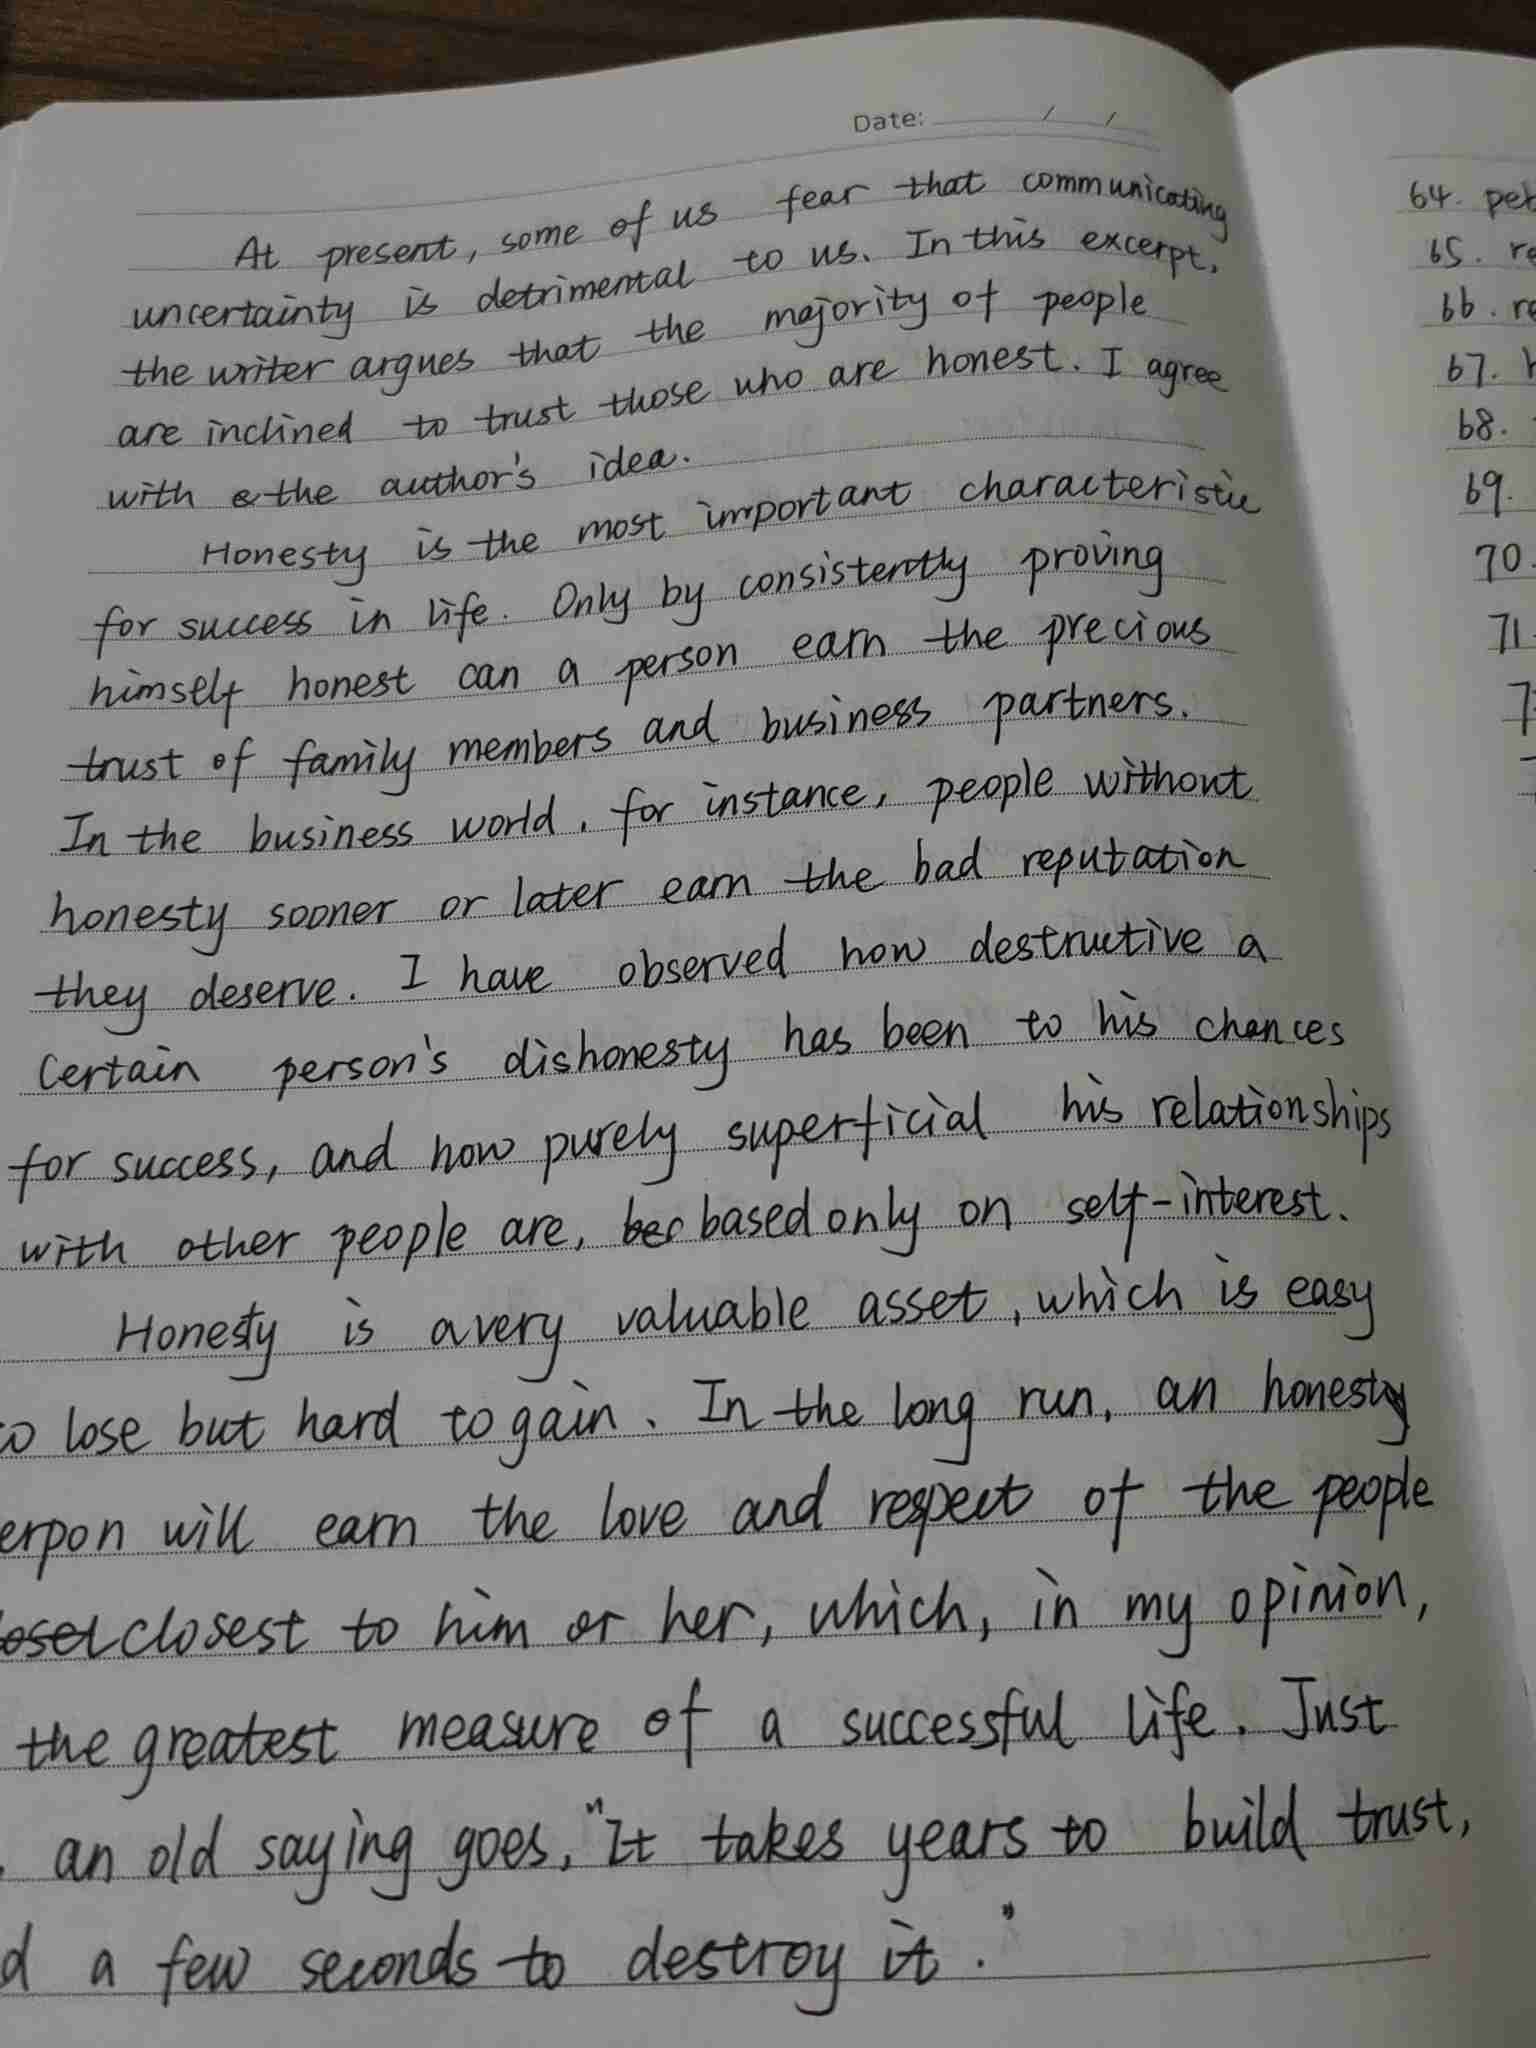 Date: / /
At present, some of us fear that communicating
uncertainty is detrimental to us. In this excerpt,
the writer argues that the majority of people
are inclined to trust those who are honest. I agree
with the author's idea.
Honesty is the most important characteristic
for success in life. Only by consistently proving
himself honest can a person earn the precious
trust of family members and business partners.
In the business world, for instance, people without
honesty sooner or later earn the bad reputation
they deserve. I have observed how destructive a
certain person's dishonesty has been to his chances
for success, and how purely superficial his relationships
with other people are, bec based only on self-interest.
Honesty is a very valuable asset, which is easy
to lose but hard to gain. In the long run, an honesty
erpon will earn the love and respect of the people
closest to him or her, which, in my opinion,
the greatest measure of a successful life. Just
an old saying goes, "It takes years to build trust,
d a few seconds to destroy it."
64. pet
65. re
66. re
67. h
68.
69.
70.
71.